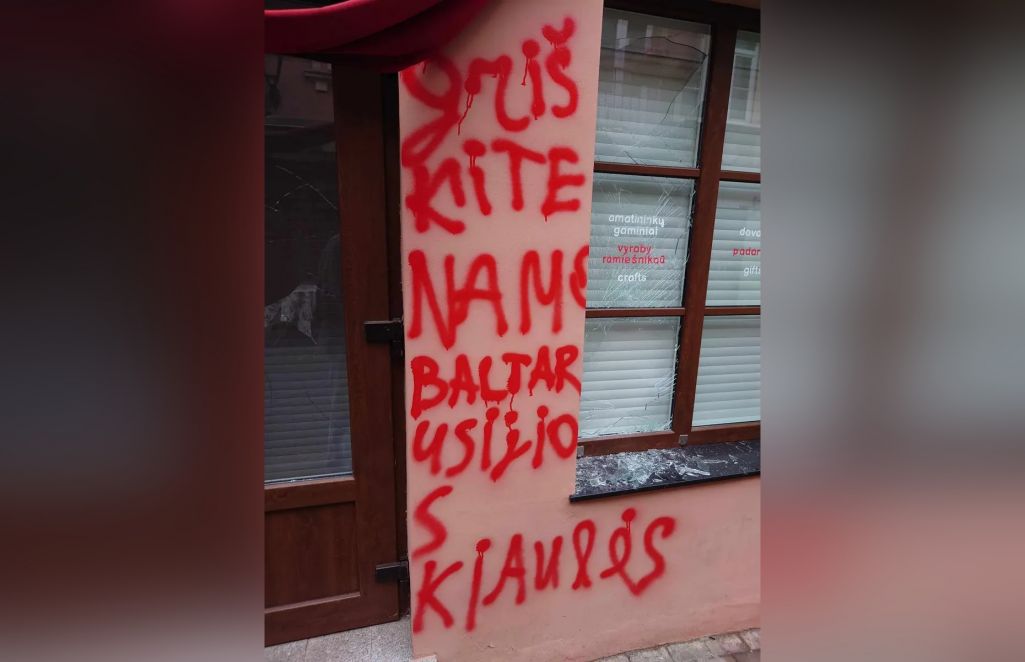 griš
KITE
NAMO
BALTAR
USIJIO
S
KIAULĖS
amatininkų
gaminiai
vyraby
ramieśnikaŭ
crafts
dova
padar
gifts